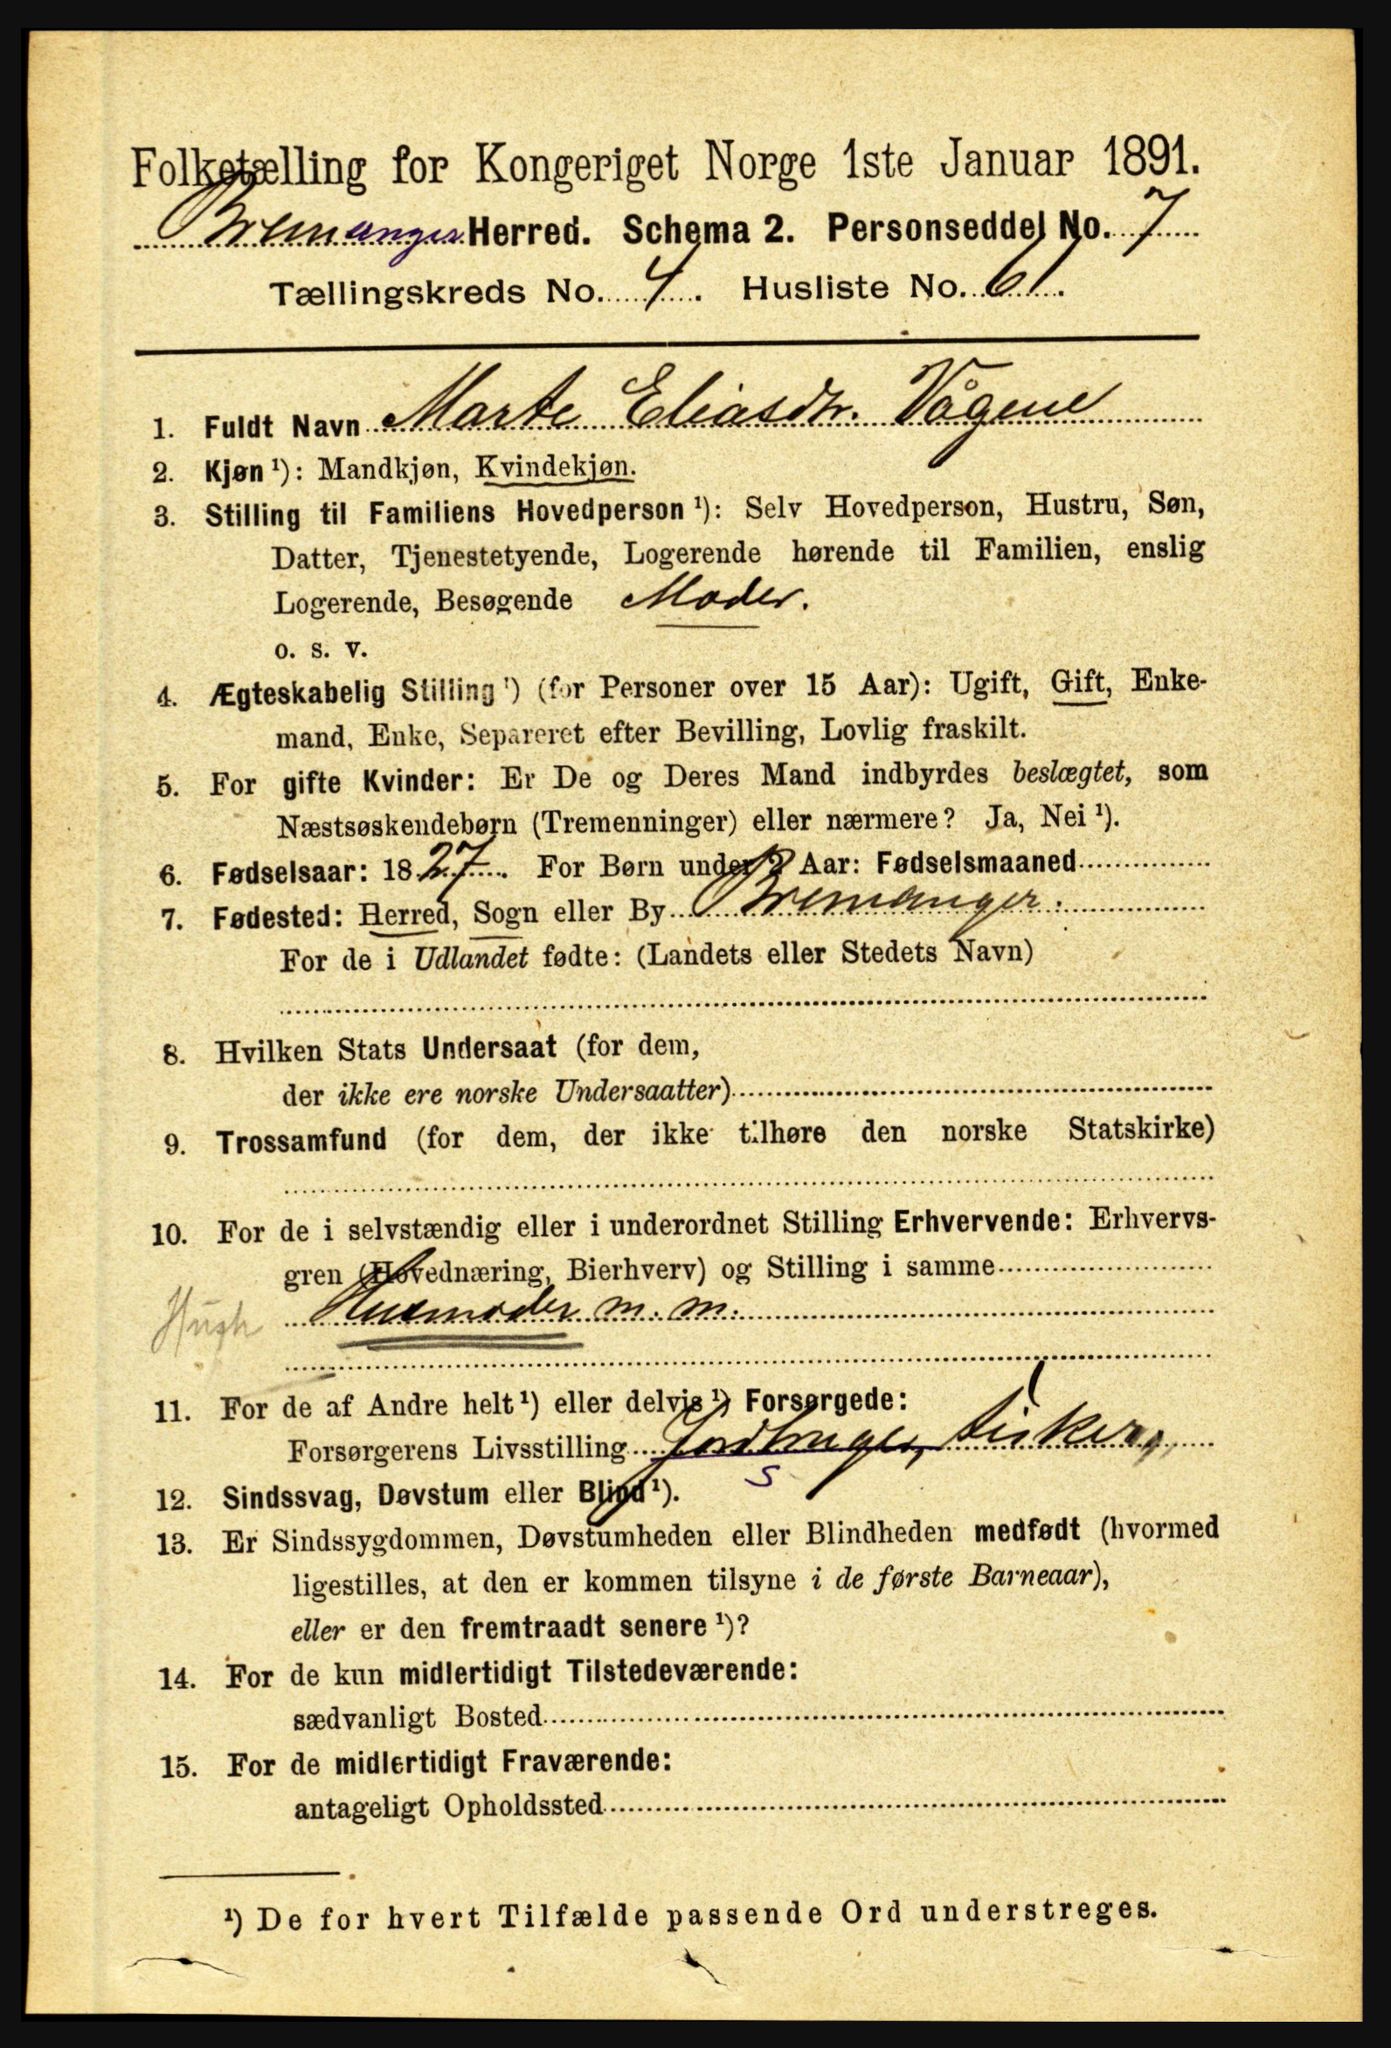 Folketælling for Kongeriget Norge 1ste Januar 1891.
Bremanger Herred. Schema 2. Personseddel No. 7
Tællingskreds No. 4. Husliste No. 61.
1. Fuldt Navn Marte Eliasdtr. Vågene
2. Kjøn ¹): Mandkjøn, Kvindekjøn.
3. Stilling til Familiens Hovedperson ¹): Selv Hovedperson, Hustru, Søn,
Datter, Tjenestetyende, Logerende hørende til Familien, enslig
Logerende, Besøgende Moder.
o. s. v.
4. Ægteskabelig Stilling ¹) (for Personer over 15 Aar): Ugift, Gift, Enke-
mand, Enke, Separeret efter Bevilling, Lovlig fraskilt.
5. For gifte Kvinder: Er De og Deres Mand indbyrdes beslægtet, som
Næstsøskendebørn (Tremenninger) eller nærmere? Ja, Nei ¹).
6. Fødselsaar: 1827. For Børn under 2 Aar: Fødselsmaaned
7. Fødested: Herred, Sogn eller By Bremanger.
For de i Udlandet fødte: (Landets eller Stedets Navn)
8. Hvilken Stats Undersaat (for dem,
der ikke ere norske Undersaatter)
9. Trossamfund (for dem, der ikke tilhøre den norske Statskirke)
10. For de i selvstændig eller i underordnet Stilling Erhvervende: Erhvervs-
gren (Hovednæring, Bierhverv) og Stilling i samme
Husmoder m. m.
11. For de af Andre helt ¹) eller delvis ¹) Forsørgede:
Forsørgerens Livsstilling Jordbruger, fisker,
s
12. Sindssvag, Døvstum eller Blind ¹).
13. Er Sindssygdommen, Døvstumheden eller Blindheden medfødt (hvormed
ligestilles, at den er kommen tilsyne i de første Barneaar),
eller er den fremtraadt senere ¹)?
14. For de kun midlertidigt Tilstedeværende:
sædvanligt Bosted
15. For de midlertidigt Fraværende:
antageligt Opholdssted
¹) De for hvert Tilfælde passende Ord understreges.